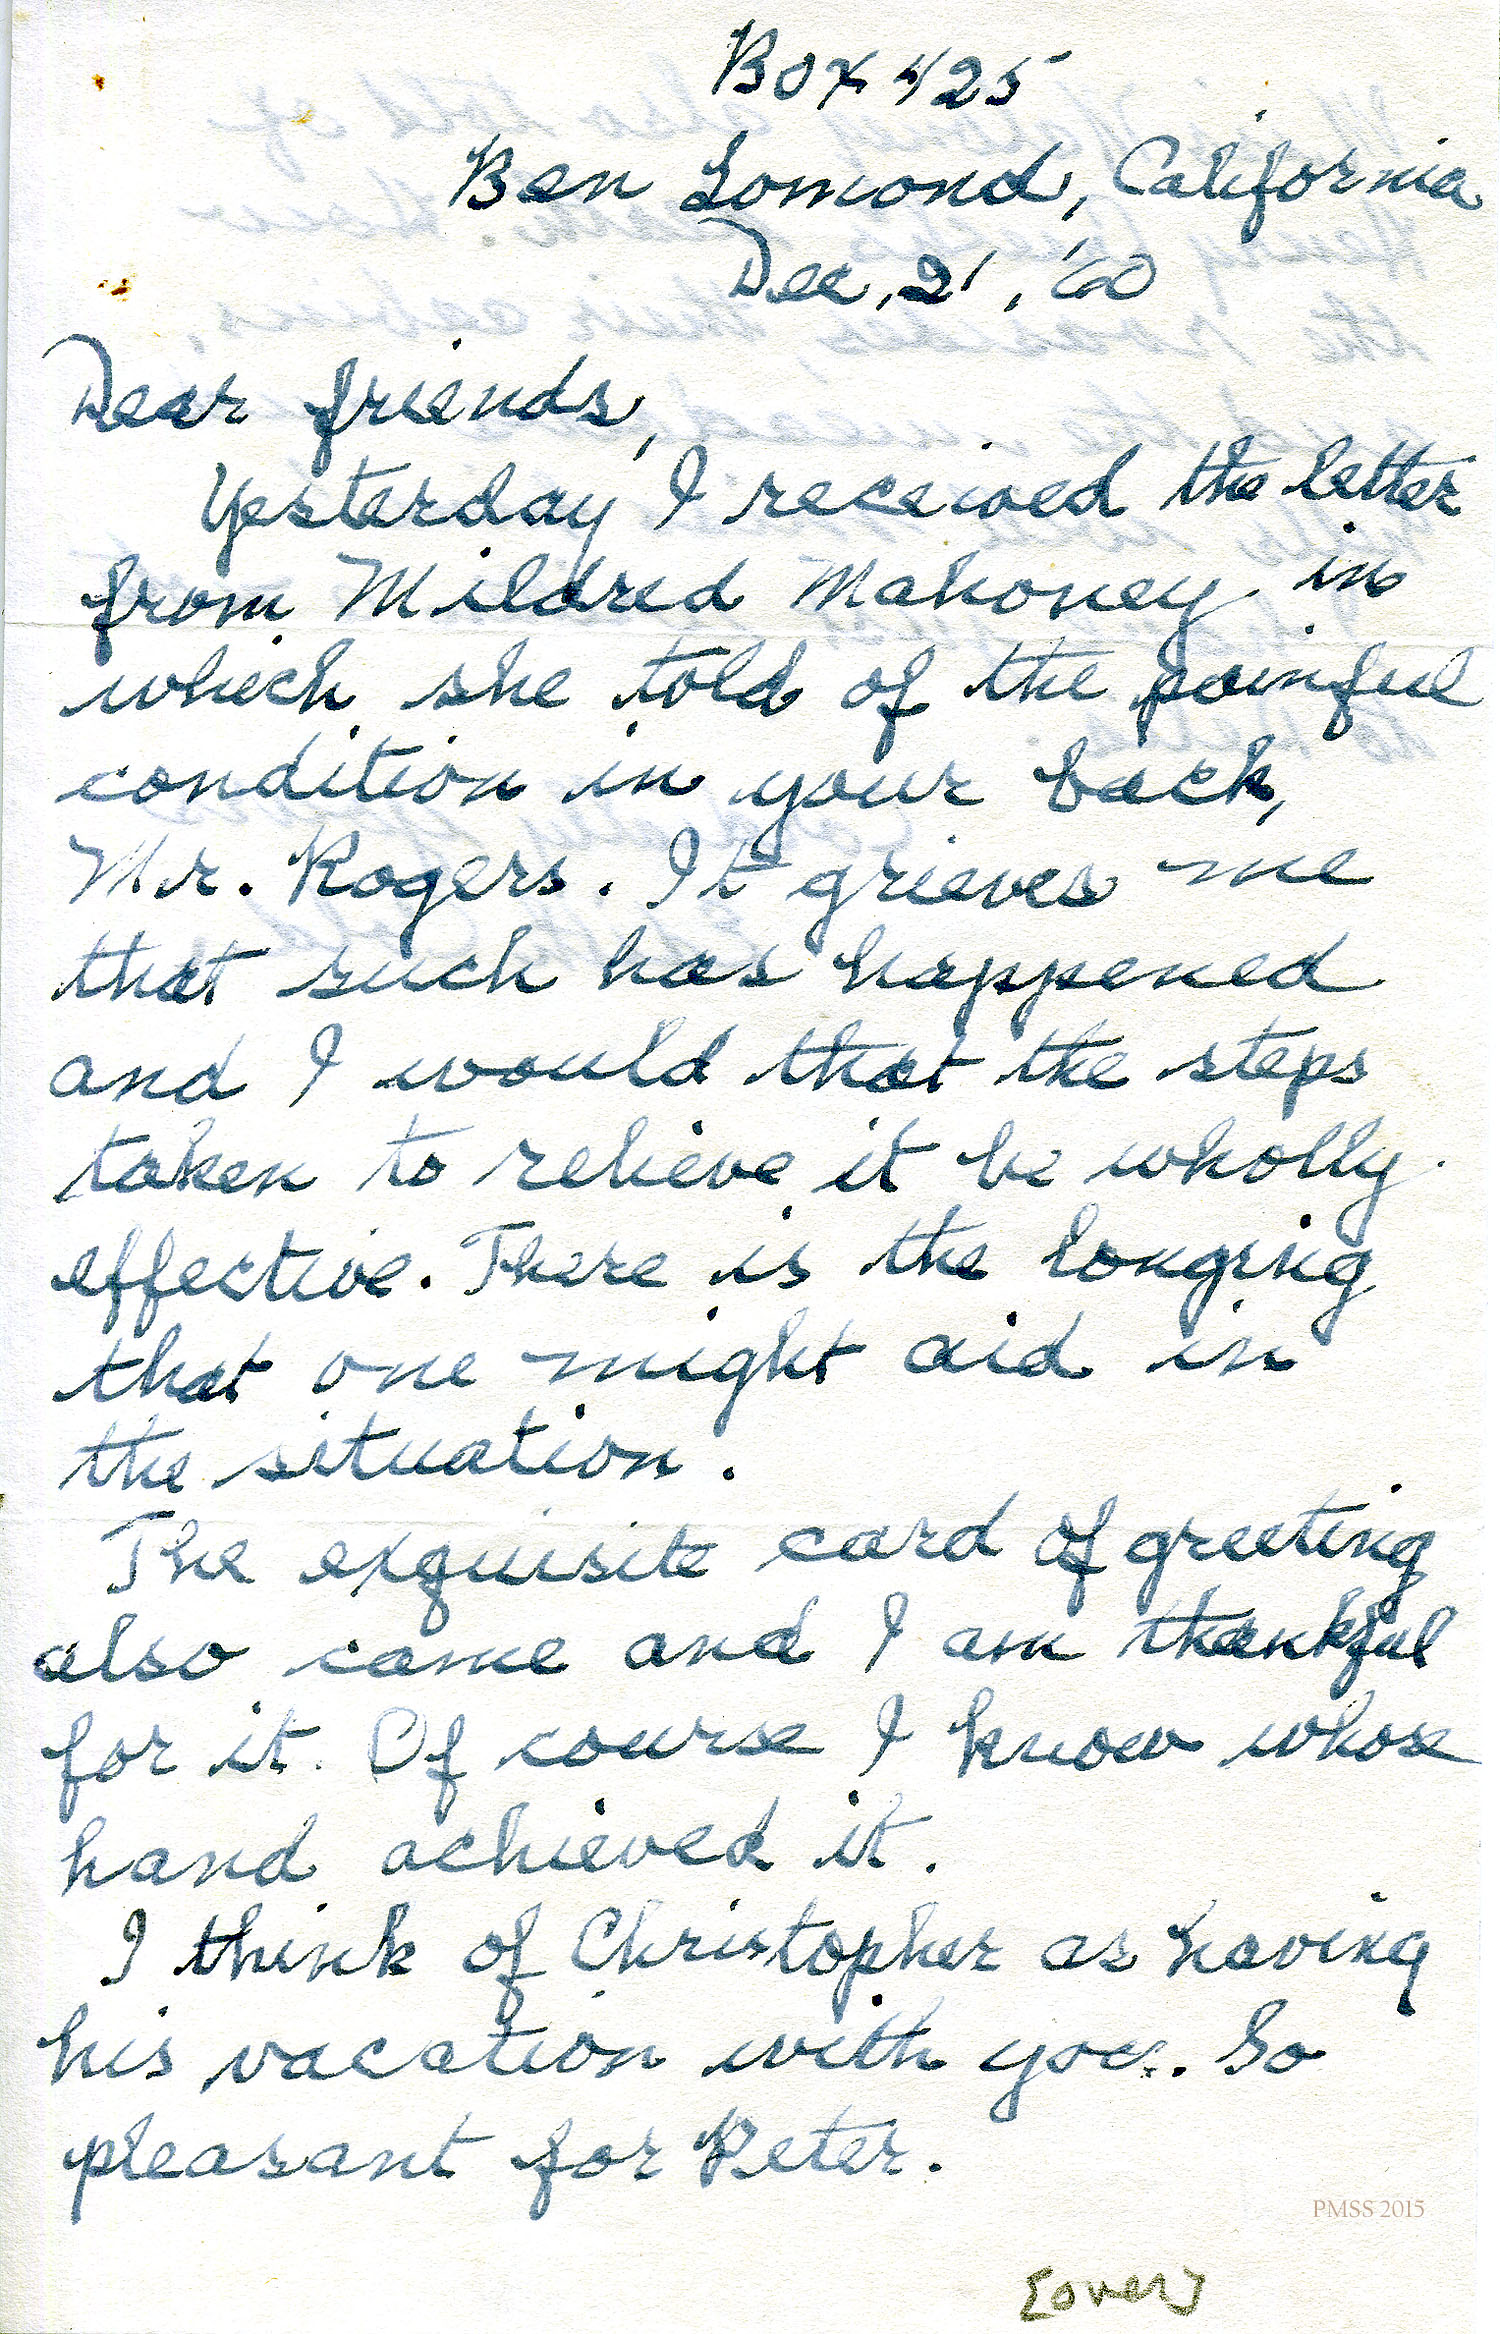 Box 425
Ben Lomond, California
Dec, 21, '60
Dear friends,
Yesterday I received the letter
from Mildred Mahoney in
which she told of the painful
condition in your back,
Mr. Rogers. It grieves me
that such has happened
and I would that the steps
taken to relieve it be wholly
effective. There is the longing
that one might aid in
the situation.
The exquisite card of greeting
also came and I am thankful
for it. Of course I know whose
hand achieved it.
I think of Christopher as having
his vacation with you. So
pleasant for Peter.
PMSS 2015
[over]